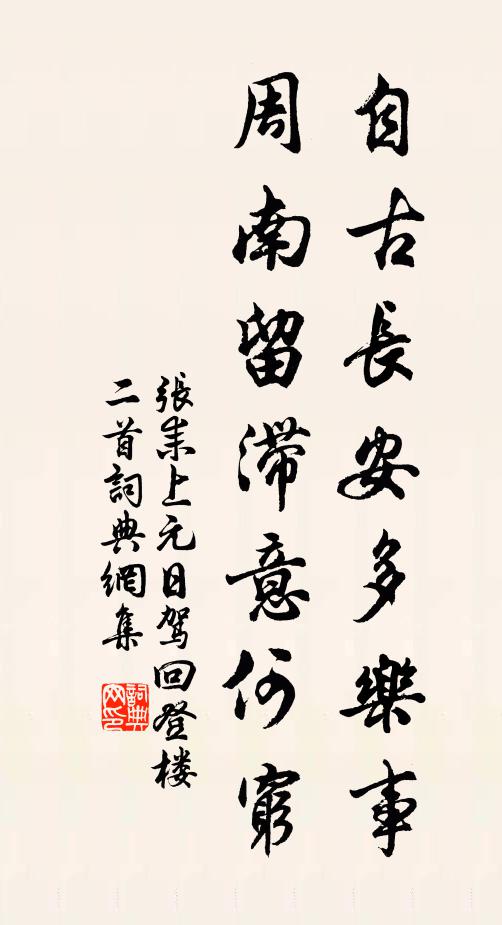 自古長安多樂事
周南留滯意何窮
張耒上元日駕回登楼
二首詞典網集
詞典网印